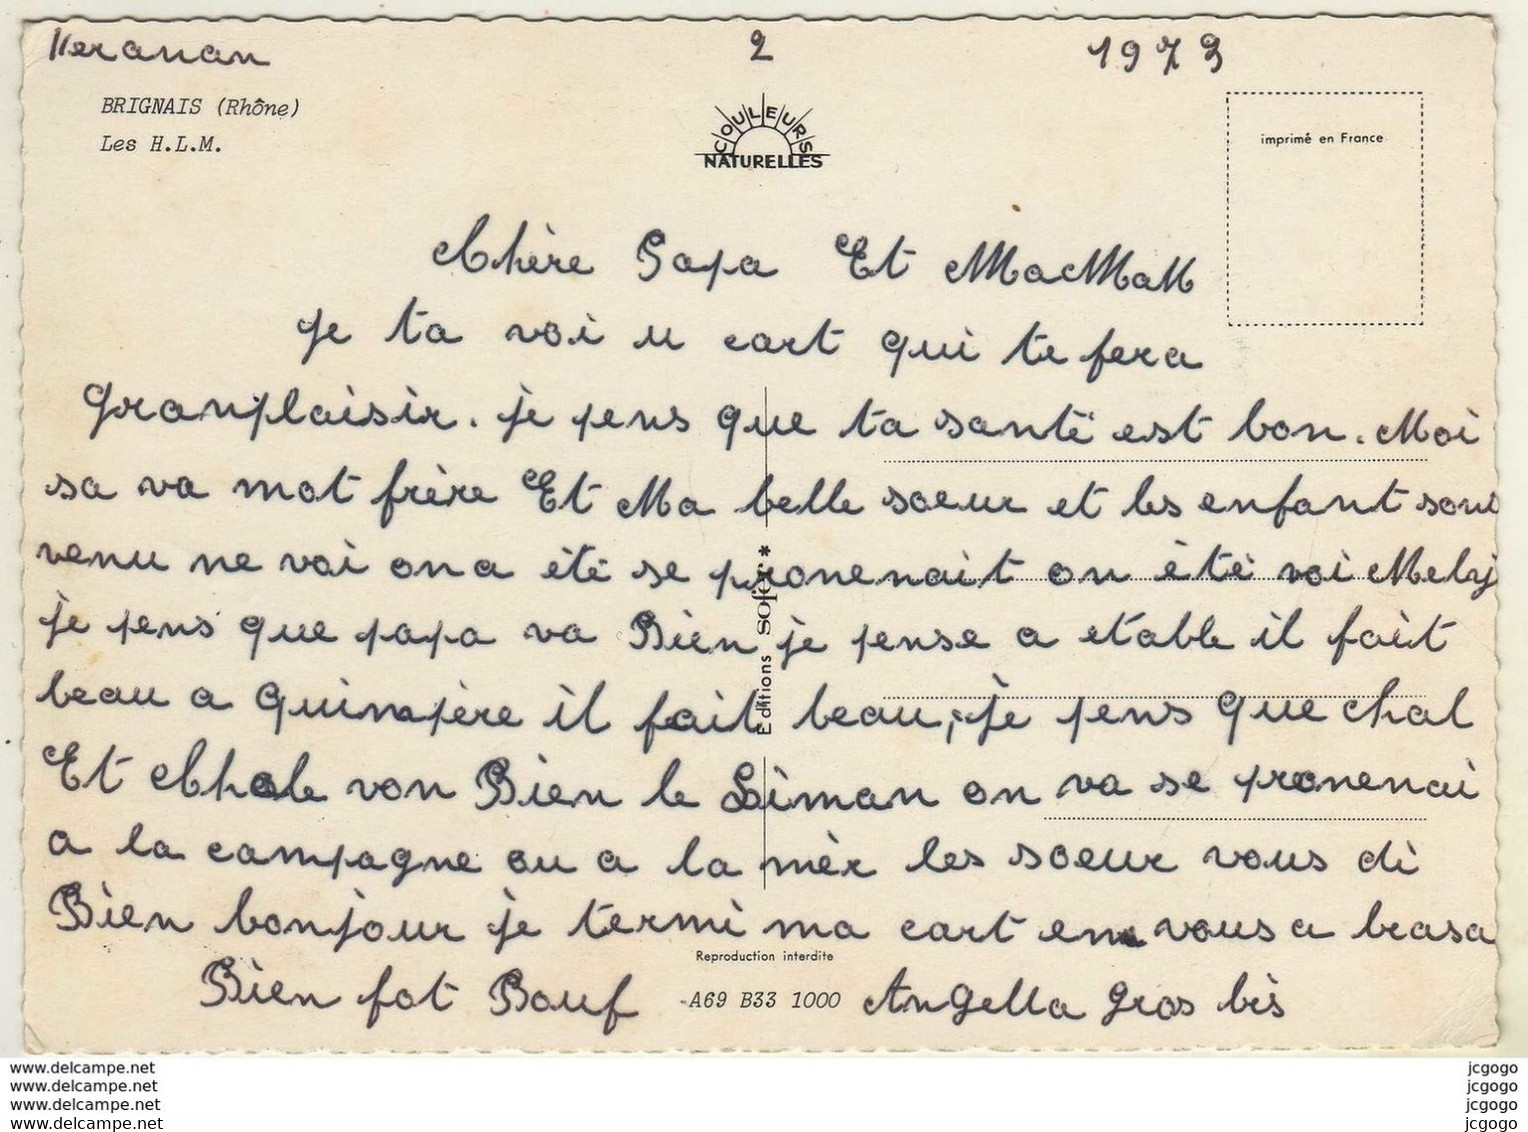 2 1973
BRIGNAIS (Rhône)
Les H.L.M.
COULEURS
NATURELLES
imprimé en France
Chère Papa Et MaMMaM
je ta voi u cart qui te fera
granplaisir. je pens que ta santé est bon. Moi
sa va mot frère Et Ma belle soeur et les enfant sont
venu ne voi on a été se pronenait on été voi Mely
je pens que papa va Bien je pense a etable il fait
beau a Quimpère il fait beau, je pens que chal
Et Chale von Bien le Liman on va se pronenai
a la campagne ou a la mèr les soeur vous di
Bien bonjour je termi ma cart en vous a brasa
Bien fot Bouf Angella gros bis
Editions sofer *
Reproduction interdite
A69 B33 1000
www.delcampe.net jcgogo
www.delcampe.net jcgogo
www.delcampe.net jcgogo
www.delcampe.net jcgogo